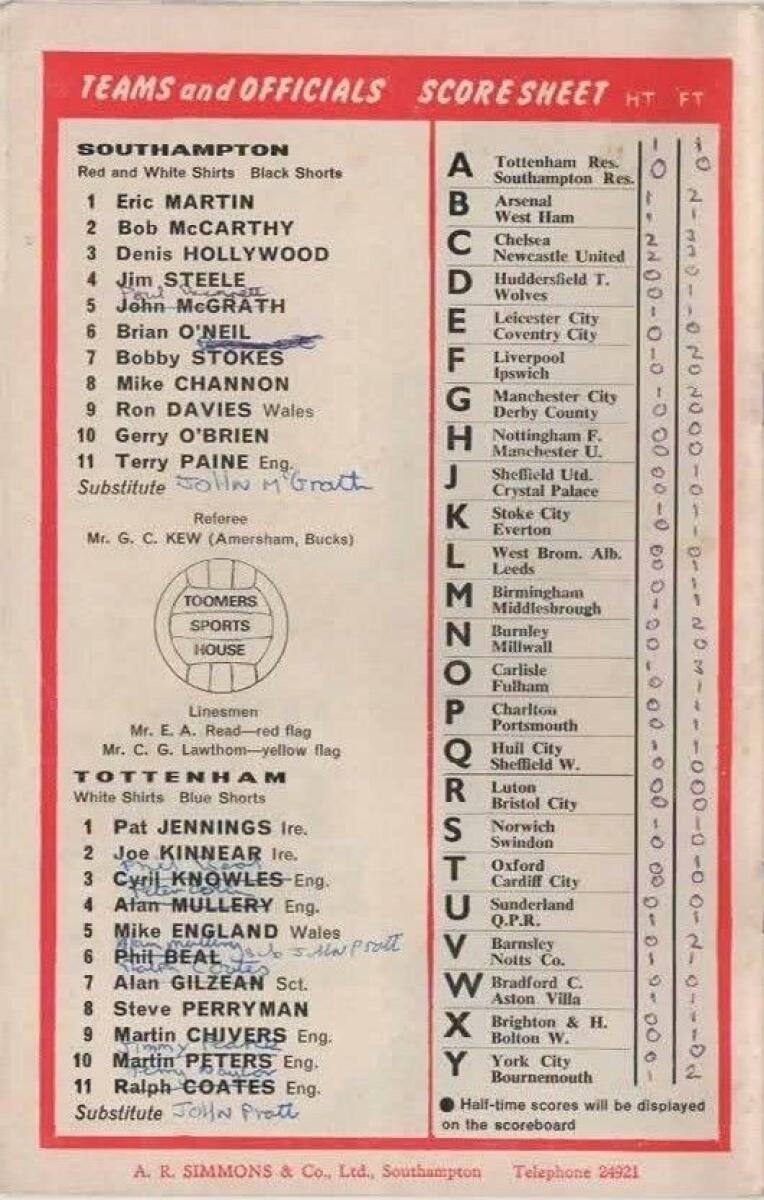 TEAMS and OFFICIALS
SOUTHAMPTON
Red and White Shirts Black Shorts
1 Eric MARTIN
2 Bob McCARTHY
3 Denis HOLLYWOOD
4 Jim STEELE
5 John McGRATH
6 Brian O'NEIL
7 Bobby STOKES
8 Mike CHANNON
9 Ron DAVIES Wales
10 Gerry O'BRIEN
11 Terry PAINE Eng.
Substitute JOHN McGrath
Referee
Mr. G. C. KEW (Amersham, Bucks)
TOOMERS
SPORTS
HOUSE
Linesmen
Mr. E. A. Read—red flag
Mr. C. G. Lawthom—yellow flag
TOTTENHAM
White Shirts Blue Shorts
1 Pat JENNINGS Ire.
2 Joe KINNEAR Ire.
3 Cyril KNOWLES Eng.
4 Alan MULLERY Eng.
5 Mike ENGLAND Wales
Alan Mullery sub JOHN Pratt
6 Phil BEAL
Ralph Coates
7 Alan GILZEAN Sct.
8 Steve PERRYMAN
9 Martin CHIVERS Eng.
Jimmy Pearce
10 Martin PETERS Eng.
11 Ralph COATES Eng.
Substitute JOHN Pratt
SCORE SHEET HT FT
A Tottenham Res. 1 1
Southampton Res. 0 0
B Arsenal 1 2
West Ham 1 1
C Chelsea 2 3
Newcastle United 2 3
D Huddersfield T. 0 0
Wolves 0 1
E Leicester City 1 1
Coventry City 0 0
F Liverpool 1 2
Ipswich 0 0
G Manchester City 1 2
Derby County 0 0
H Nottingham F. 0 0
Manchester U. 0 0
J Sheffield Utd. 0 1
Crystal Palace 0 0
K Stoke City 1 1
Everton 0 1
L West Brom. Alb. 0 0
Leeds 0 1
M Birmingham 0 1
Middlesbrough 1 1
N Burnley 0 2
Millwall 0 0
O Carlisle 1 3
Fulham 0 1
P Charlton 0 1
Portsmouth 0 1
Q Hull City 1 1
Sheffield W. 0 0
R Luton 0 0
Bristol City 0 0
S Norwich 1 1
Swindon 0 0
T Oxford 0 1
Cardiff City 0 0
U Sunderland 0 0
Q.P.R. 1 1
V Barnsley 0 2
Notts Co. 1 1
W Bradford C. 0 0
Aston Villa 1 1
X Brighton & H. 0 1
Bolton W. 0 1
Y York City 0 0
Bournemouth 1 2
● Half-time scores will be displayed
on the scoreboard
A. R. SIMMONS & Co., Ltd., Southampton Telephone 24921